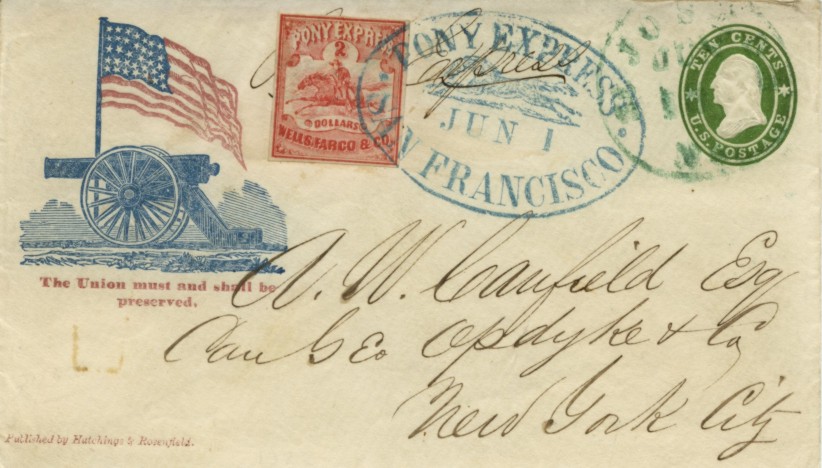 PONY EXPRESS
2
DOLLARS
WELLS, FARGO & CO.
express
PONY EXPRESS
JUN 1
SAN FRANCISCO
TEN CENTS
U.S. POSTAGE
The Union must and shall be
preserved.
A. W. Canfield Esq
Care Geo Opdyke & Co
New York City
Published by Hutchings & Rosenfield.